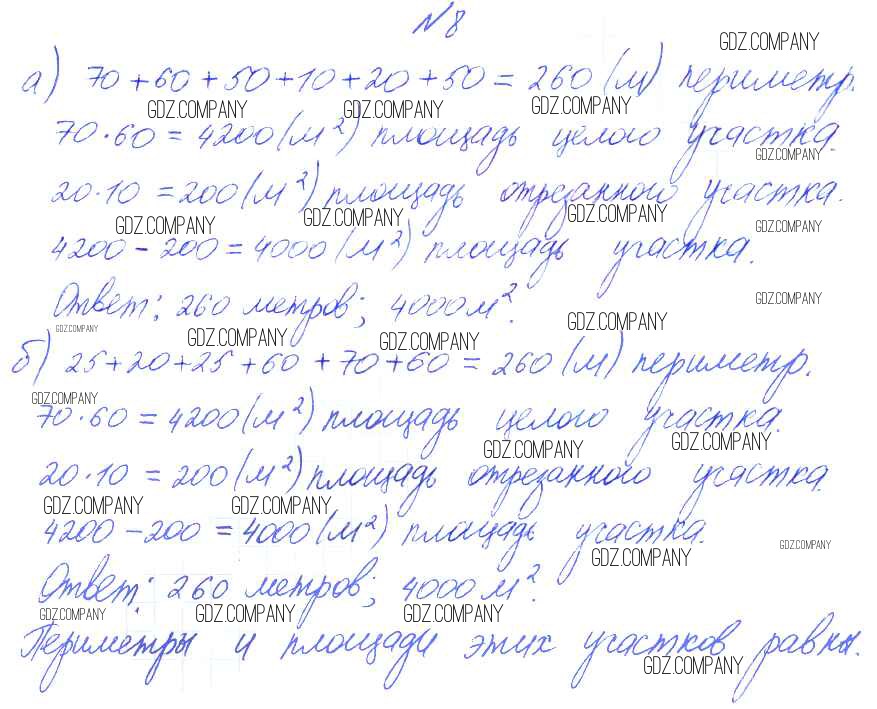 №8
GDZ.COMPANY
а) 70+60+50+10+20+50=260 (м) периметр.
GDZ.COMPANY GDZ.COMPANY GDZ.COMPANY
70·60=4200(м²) площадь целого участка.
GDZ.COMPANY
20·10=200(м²) площадь отрезанного участка.
GDZ.COMPANY GDZ.COMPANY GDZ.COMPANY GDZ.COMPANY
4200-200=4000(м²) площадь участка.
Ответ: 260 метров; 4000м².
GDZ.COMPANY
GDZ.COMPANY GDZ.COMPANY GDZ.COMPANY GDZ.COMPANY
б) 25+20+25+60+70+60=260 (м) периметр.
GDZ.COMPANY
70·60=4200(м²) площадь целого участка.
GDZ.COMPANY GDZ.COMPANY
20·10=200(м²) площадь отрезанного участка.
GDZ.COMPANY GDZ.COMPANY
4200-200=4000(м²) площадь участка.
GDZ.COMPANY GDZ.COMPANY
Ответ: 260 метров; 4000 м².
GDZ.COMPANY GDZ.COMPANY GDZ.COMPANY
Периметры и площади этих участков равны.
GDZ.COMPANY